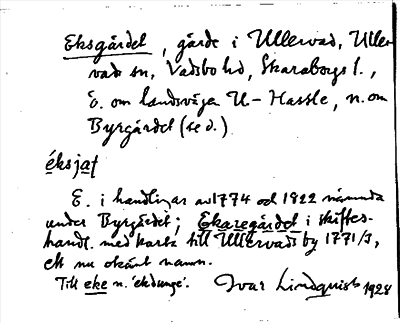 Eksgärdet, gärde i Ullervad, Uller-
vads sn, Vadsbo hd, Skaraborgs l.,
ö. om landsvägen U.-Hassle, n. om
Byrgärdet (se d.)
éksjaṭ
E. i handlingar av 1774 och 1822 nämnda
under Byrgärdet; Ekaregärdet i skiftes-
handl. med karta till Ullervads by 1771/3,
ett nu okänt namn.
Till eke n. 'ekdunge'. Ivar Lindquist 1928